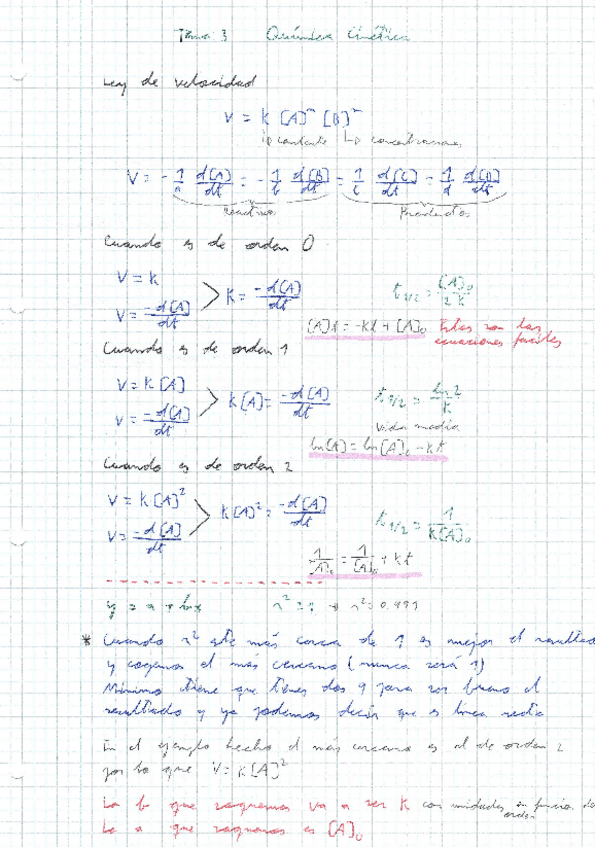 Tema 3 Química Cinética
Ley de velocidad
V = k [A]^n [B]^m
↳ constante ↳ concentraciones
V = -1/a d[A]/dt = -1/b d[B]/dt = 1/c d[C]/dt = 1/d d[D]/dt
reactivos Productos
Cuando es de orden 0
V = k
V = -d[A]/dt > k = -d[A]/dt t1/2 = [A]0/2k
[A]t = -kt + [A]0 Estas son las ecuaciones faciles
Cuando es de orden 1
V = k[A]
V = -d[A]/dt > k[A] = -d[A]/dt t1/2 = ln2/k
Vida media
ln[A] = ln[A]0 - kt
Cuando es de orden 2
V = k[A]²
V = -d[A]/dt > k[A]² = -d[A]/dt t1/2 = 1/k[A]0
1/[A]t = 1/[A]0 + kt
y = a + bx r² = 1 → r² = 0.999
* Cuando r² esté más cerca de 1 es mejor el resultado
y cogemos el mas cercano (nunca será 1)
Mínimo tiene que tener dos 9 para ser bueno el
resultado y ya podemos decir que es línea recta
En el ejemplo hecho el más cercano es el de orden 2
por lo que V = k[A]²
La b que saquemos va a ser k con unidades en funcion de orden
La a que saquemos es [A]0